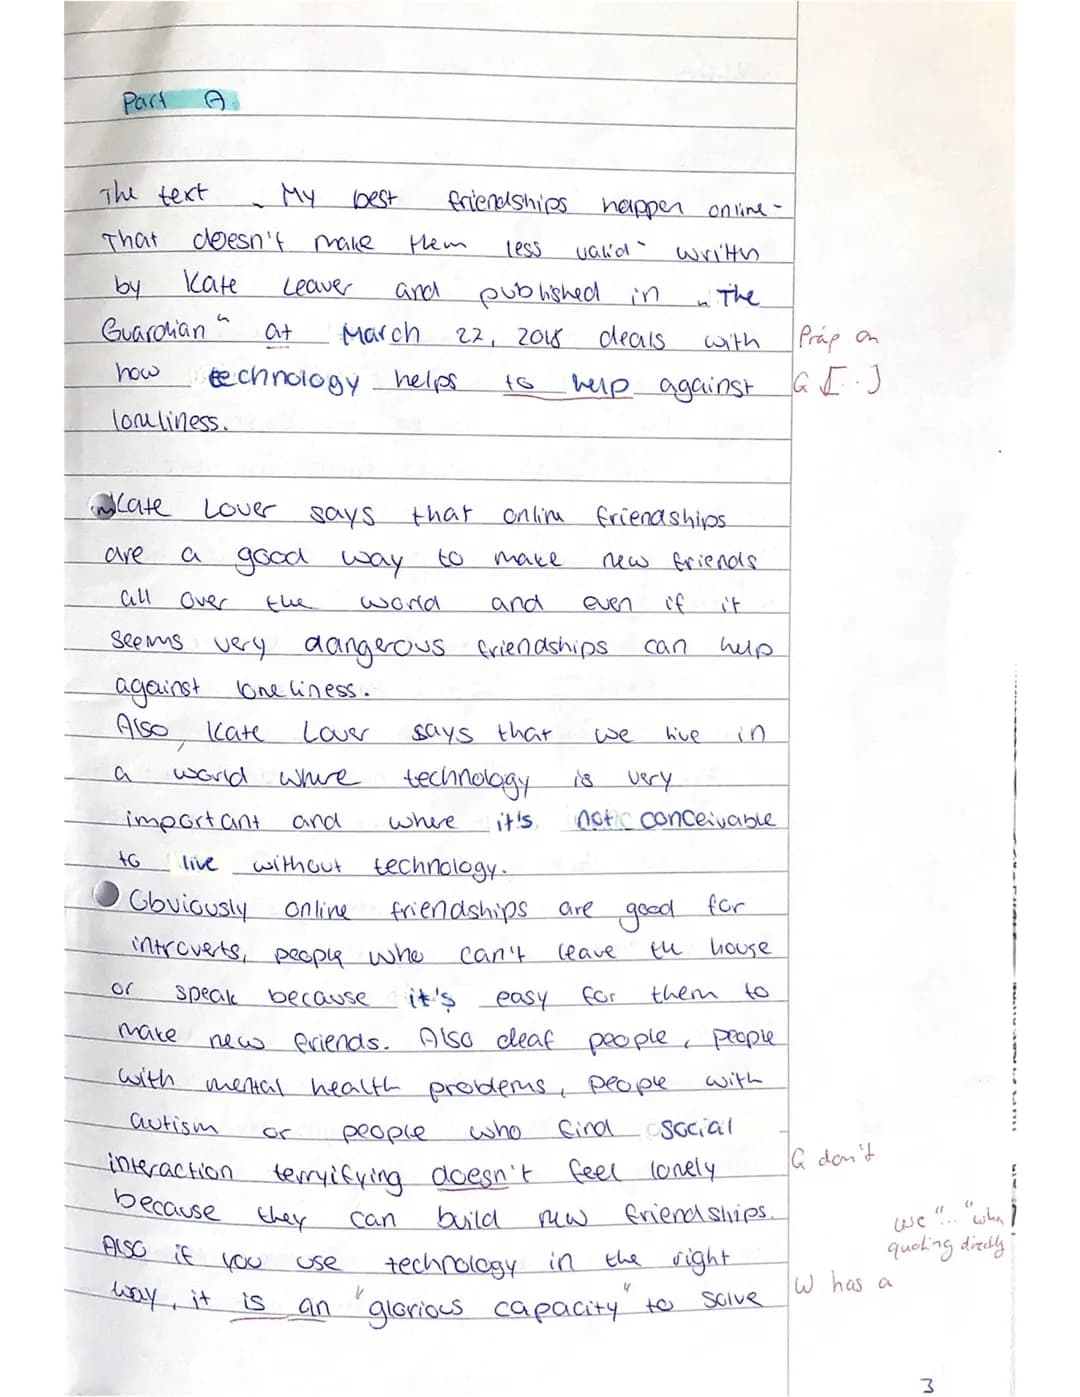 Part A
The text „ My best friendships happen online -
That doesn't make them less valid“ written
by Kate Leaver and published in „ The
Guardian “ at March 22, 2018 deals with
Präp on
how technology helps to help against
G [..]
loneliness.
Kate Lover says that online friendships
are a good way to make new friends
all over the world and even if it
seems very dangerous friendships can help
against loneliness.
Also, Kate Lover says that we live in
a world where technology is very
important and where it's not conceivable
to live without technology.
Obviously online friendships are good for
introverts, people who can't leave the house
or speak because it's easy for them to
make new friends. Also deaf people, people
with mental health problems, people with
autism or people who find social
interaction terryifying doesn't feel lonely
G don't
because they can build new friendships.
use "..." when
quoting directly
Also if you use technology in the right
way, it is an "glorious capacity" to solve
W has a
3